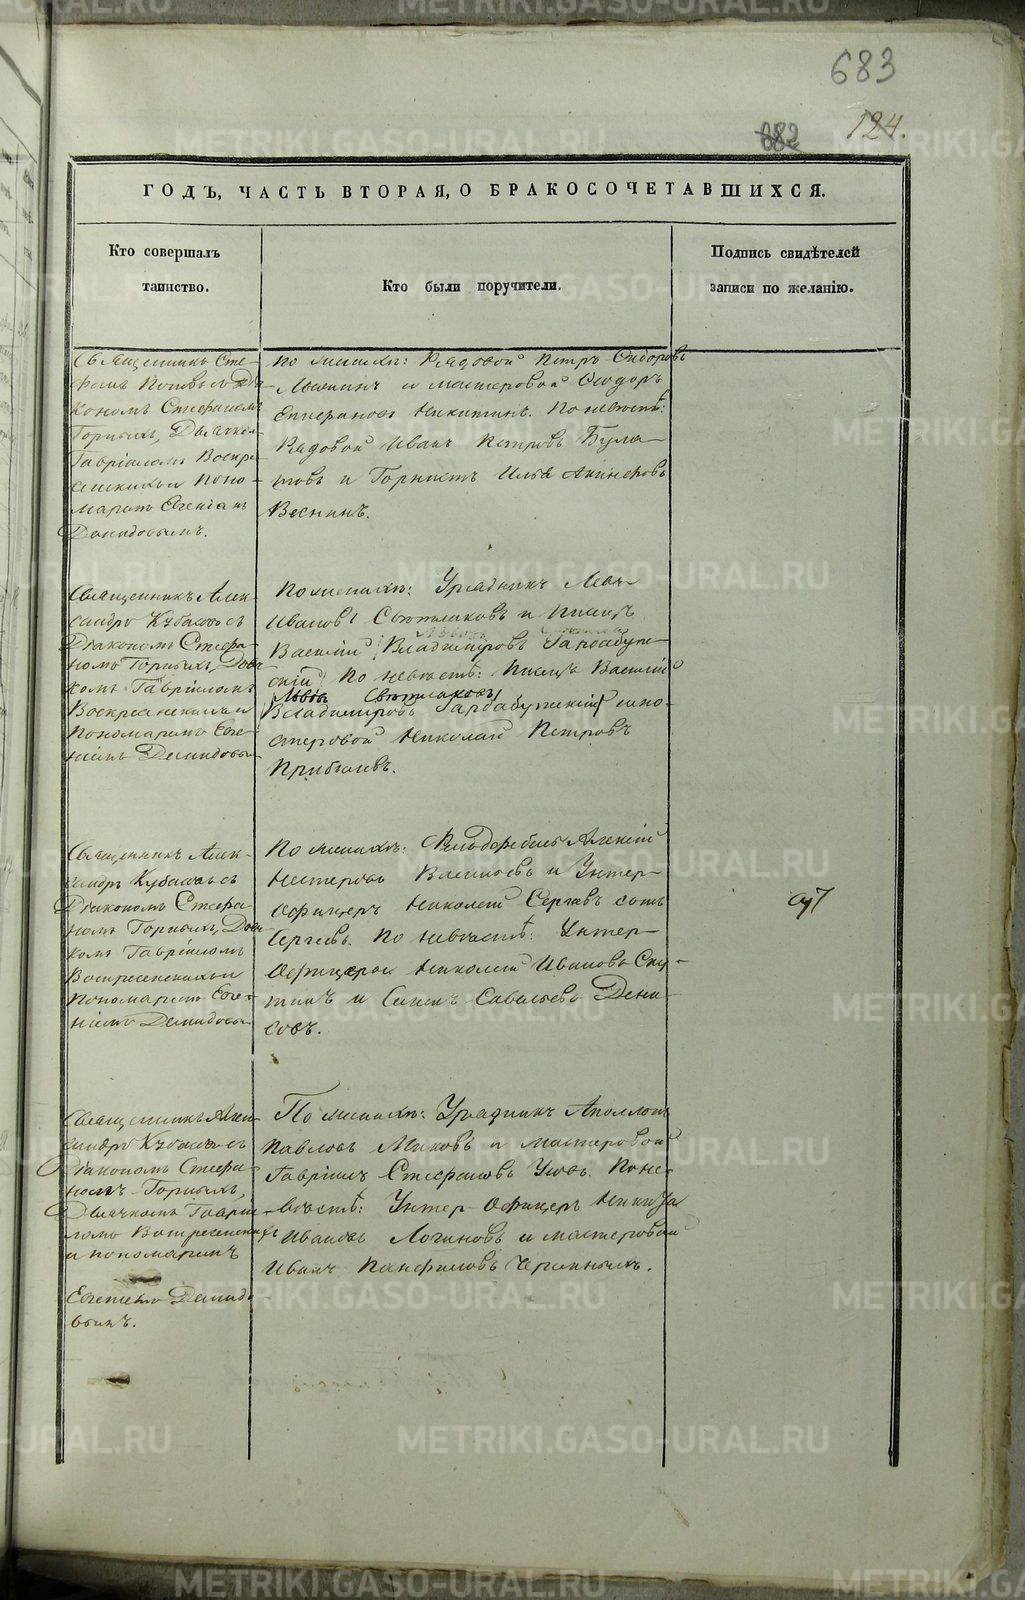 683
682 124.
ГОДЪ, ЧАСТЬ ВТОРАЯ, О БРАКОСОЧЕТАВШИХСЯ.
Кто совершалъ
таинство.
Кто были поручители.
Подпись свидѣтелей
записи по желанію.
Священникъ Сте-
фанъ Поповъ съ Діа-
кономъ Стефаномъ
Горныхъ, Дьячкомъ
Гавріиломъ Воскре-
сенскимъ и Поно-
маремъ Евгеніемъ
Демидовымъ.
По женихѣ: Рядовой Петръ Сидоровъ
и мастеровой Ѳеодоръ
Епифановъ Никитинъ. По невѣстѣ:
Рядовой Иванъ Петровъ Була-
товъ и Горнистъ Илья Акинфовъ
Веснинъ.
Священникъ Алек-
сандръ Кубасовъ съ
Діакономъ Стефа-
номъ Горныхъ, Дьяч-
комъ Гавріиломъ
Воскресенскимъ и
Пономаремъ Евге-
ніемъ Демидовы-
По женихѣ: Урядникъ Левъ
Ивановъ Свѣтлаковъ и писецъ
Василій Владиміровъ Гардабуж-
скій. По невѣстѣ: писецъ Василій
Львовъ Свѣтлаковъ
Владиміровъ Гардабужскій и ма-
стеровой Николай Петровъ
Прибылевъ.
Священникъ Алек-
сандръ Кубасовъ съ
Діакономъ Стефа-
номъ Горныхъ, Дьяч-
комъ Гавріиломъ
Воскресенскимъ и
Пономаремъ Евге-
ніемъ Демидовы-
По женихѣ: Фельдфебель Алексѣй
Нестеровъ Васильевъ и Унтер-
Офицеръ Николай Сергѣевъ сынъ
Сергѣевъ. По невѣстѣ: Унтер-
Офицеры Николай Ивановъ
и Савельевъ Дени-
совъ.
Священникъ Алек-
сандръ Кубасовъ съ
Діакономъ Стефа-
номъ Горныхъ,
Дьячкомъ Гаврі-
иломъ Воскресенскимъ
и пономаремъ
Евгеніемъ Демидо-
вымъ.
По женихѣ: Урядникъ Аполлонъ
Павловъ и мастеровой
Гавріилъ Стефановъ По не-
вѣстѣ: Унтер-Офицеръ Никита
Ивановъ Логиновъ и мастеровой
Иванъ Панфиловъ Черемныхъ.